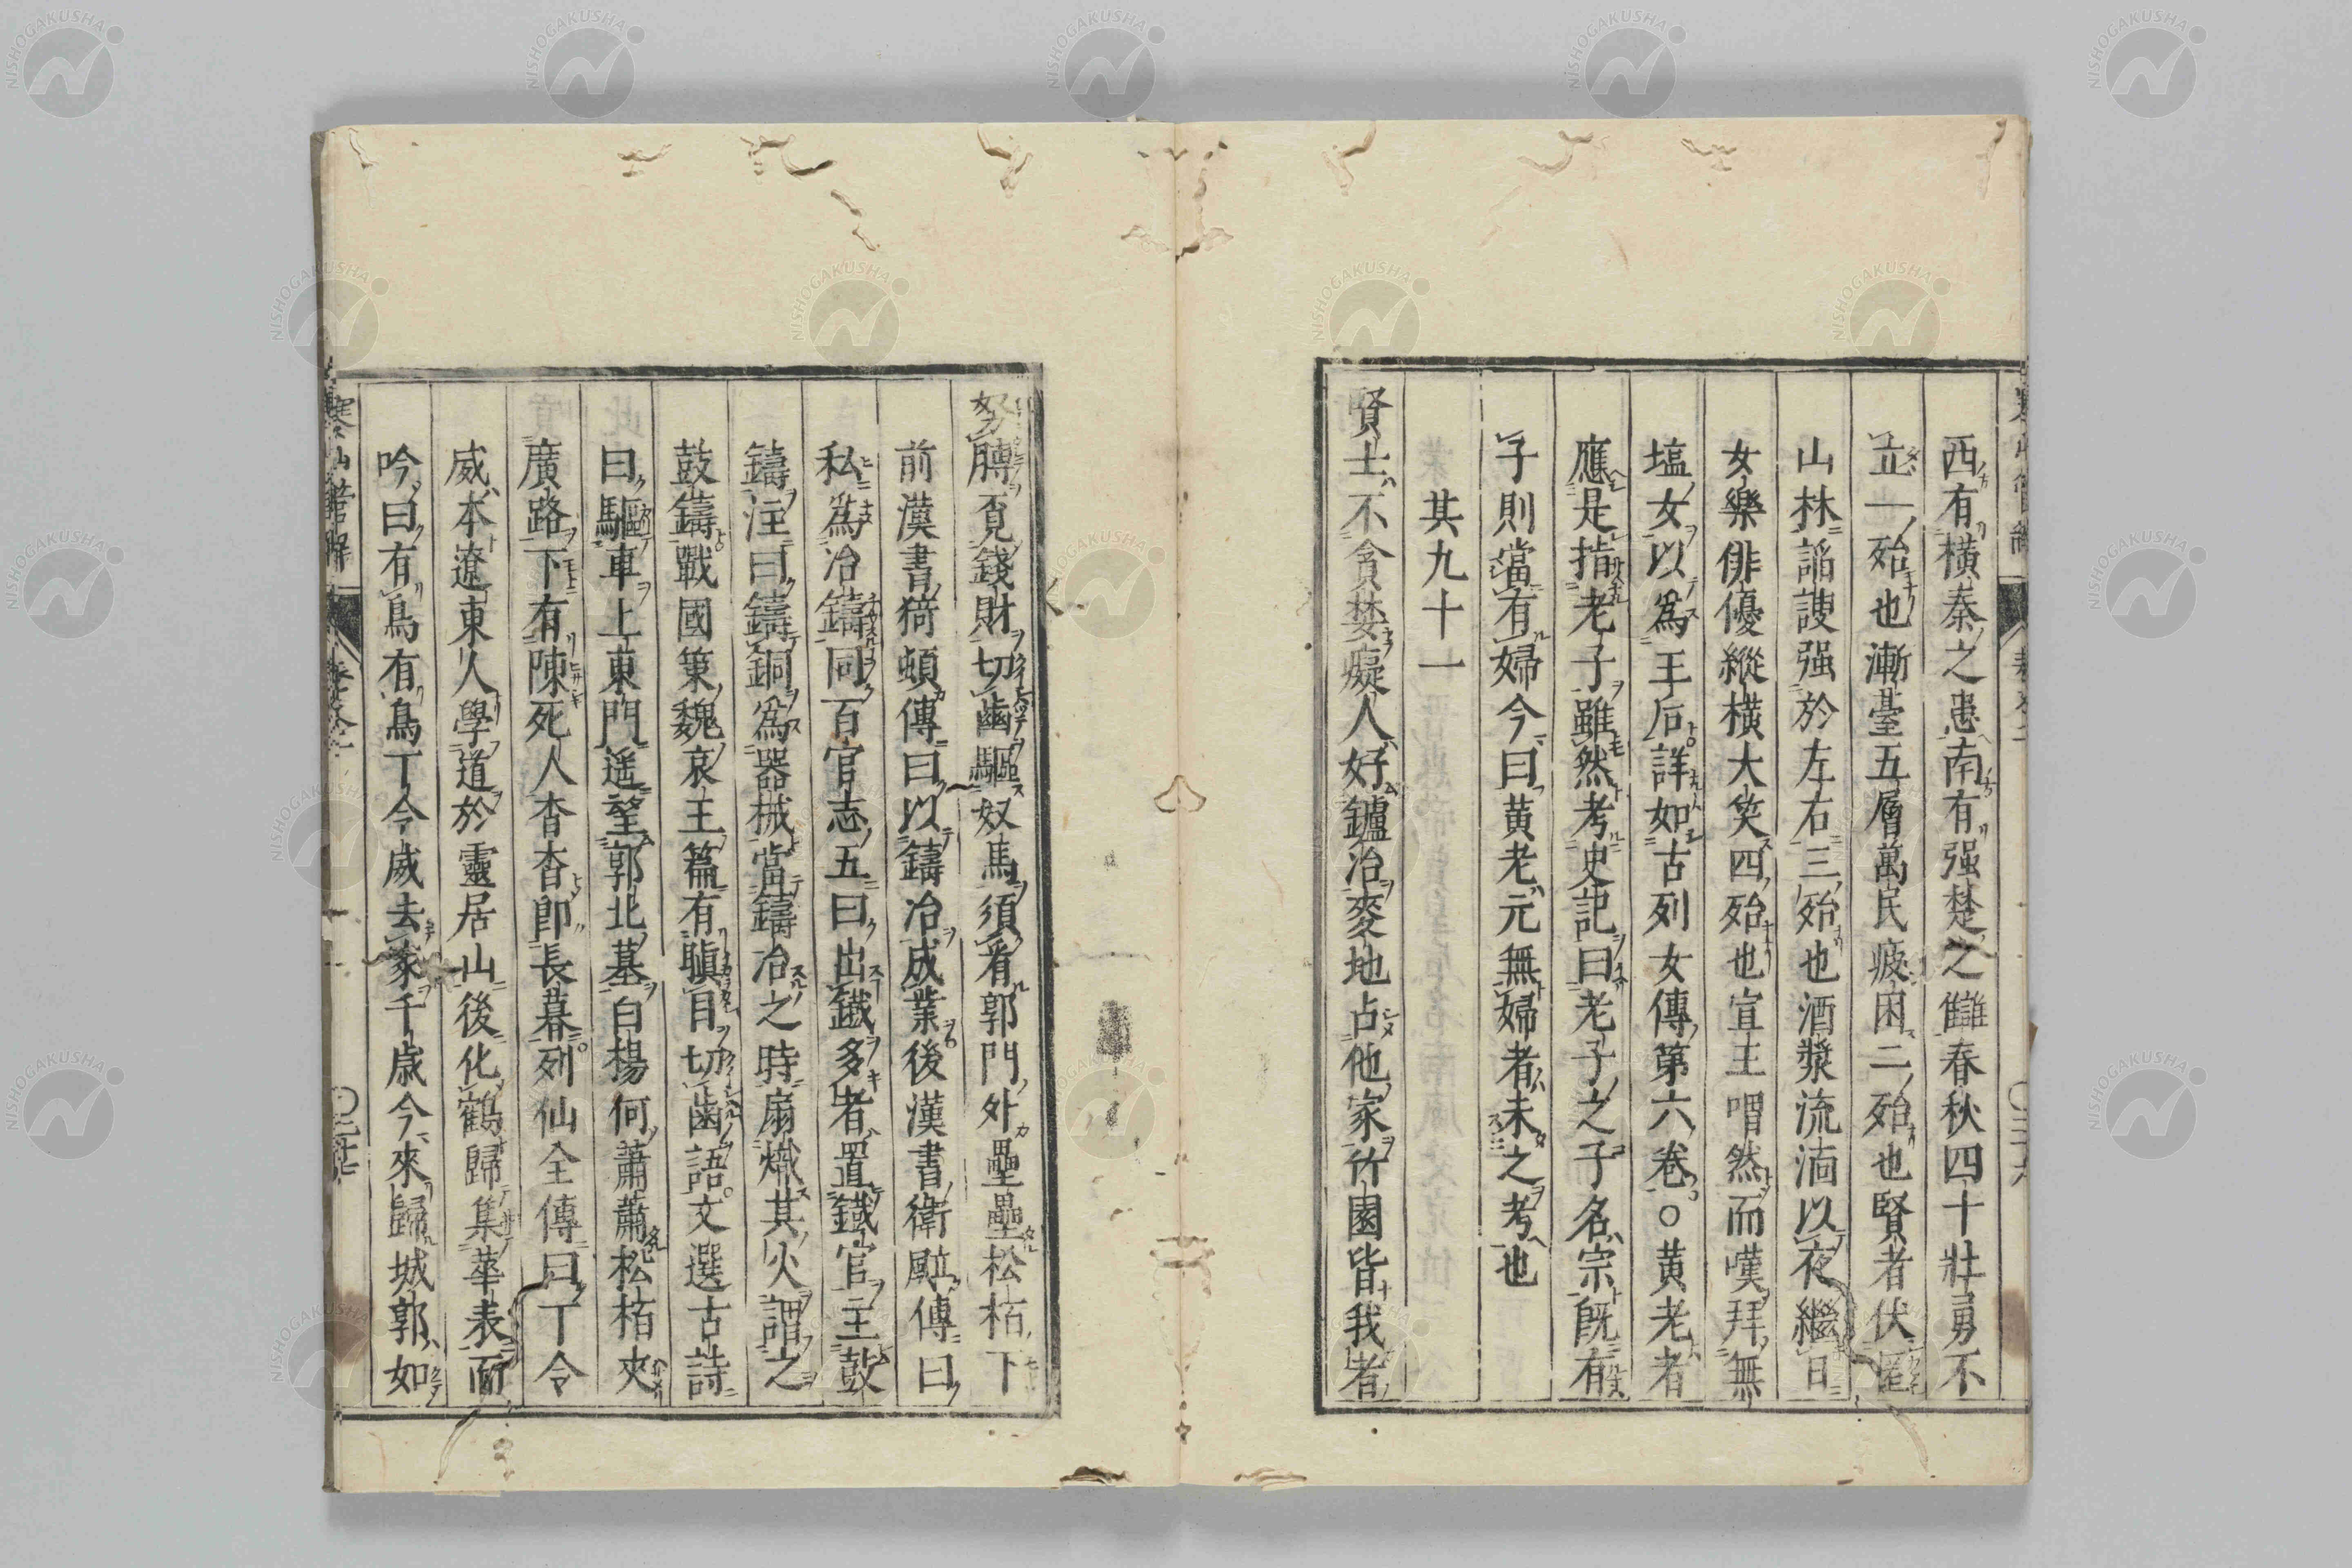 西有橫秦之患南有强楚之讎春秋四十壯勇不
立一殆也漸臺五層萬民疲困二殆也賢者伏匿
山林諂諛强於左右三殆也酒漿流湎以夜繼日
女樂俳優縱橫大笑四殆也宣王喟然而嘆拜無
塩女以爲王后詳如古列女傳第六卷○黄老者
應是指老子雖然考史記曰老子之子名宗既有
子則當有婦今曰黄老元無婦者未之考也
其九十一
賢士不貪婪癡人好鑪冶麥地占他家竹園皆我者
努膊覓錢財切齒驅奴馬須看郭門外壘壘松栢下
前漢書猗頓傳曰以鑄冶成業後漢書衛颯傳曰
私爲冶鑄同百官志五曰出鐵多者置鐵官主鼓
鑄注曰鑄銅爲器械當鑄冶之時扇熾其火謂之
鼓鑄戰國策魏哀王篇有瞋目切齒語文選古詩
曰驅車上東門遥望郭北墓白楊何蕭蕭松栢夾
廣路下有陳死人杳杳即長暮列仙全傳曰丁令
威本遼東人學道於靈居山後化鶴歸集華表而
吟曰有鳥有鳥丁令威去家千歳今來歸城郭如